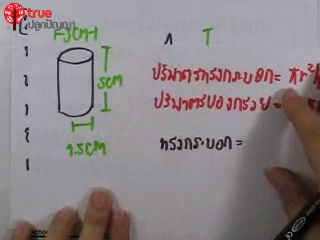 true
ปลูกปัญญา
3CM
5CM
1.5CM
ปริมาตรทรงกระบอก= πr²
ปริมาตรของกรวย=
ทรงกระบอก=